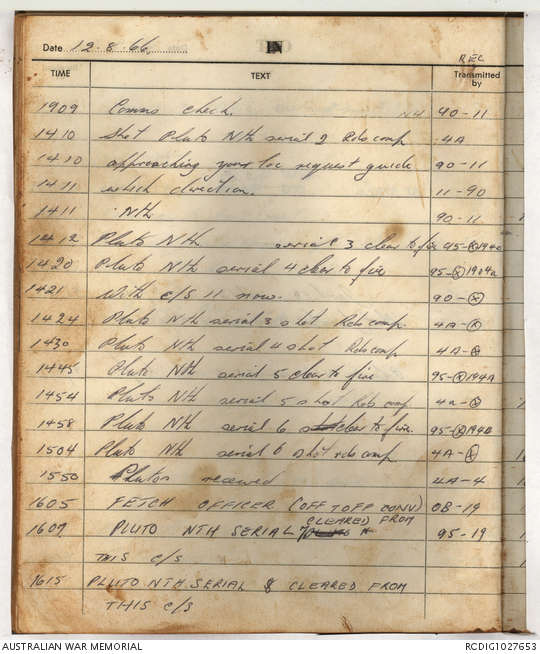 Date 12.8.66 IN
REC
TIME TEXT Transmitted by
1909 Comms check. N4 90-11
1410 Shot Pluto Nth serial 2 Rds comp 4A
1410 approaching your loc request guide 90-11
1411 which direction. 11-90
1411 Nth 90-11
1412 Pluto Nth serial 3 clear to fire 95-X 194a
1420 Pluto Nth serial 4 clear to fire 95-X 194a
1421 With c/s 11 now. 90-X
1424 Pluto Nth serial 3 shot Rds comp. 4A-X
1430 Pluto Nth serial 4 shot Rds comp 4A-X
1445 Pluto Nth serial 5 clear to fire 95-X 194A
1454 Pluto Nth serial 5 shot Rds comp 4a-X
1458 Pluto Nth serial 6 clear to fire. 95-X 194B
1504 Pluto Nth serial 6 shot rds comp 4A-X
1550 Plutos received 4A-4
1605 FETCH OFFICER (OFF TO FP CONV) 08-19
1607 PLUTO NTH SERIAL 7 CLEARED FROM 95-19
THIS C/S
1615 PLUTO NTH SERIAL 8 CLEARED FROM
THIS C/S
AUSTRALIAN WAR MEMORIAL RCDIG1027653